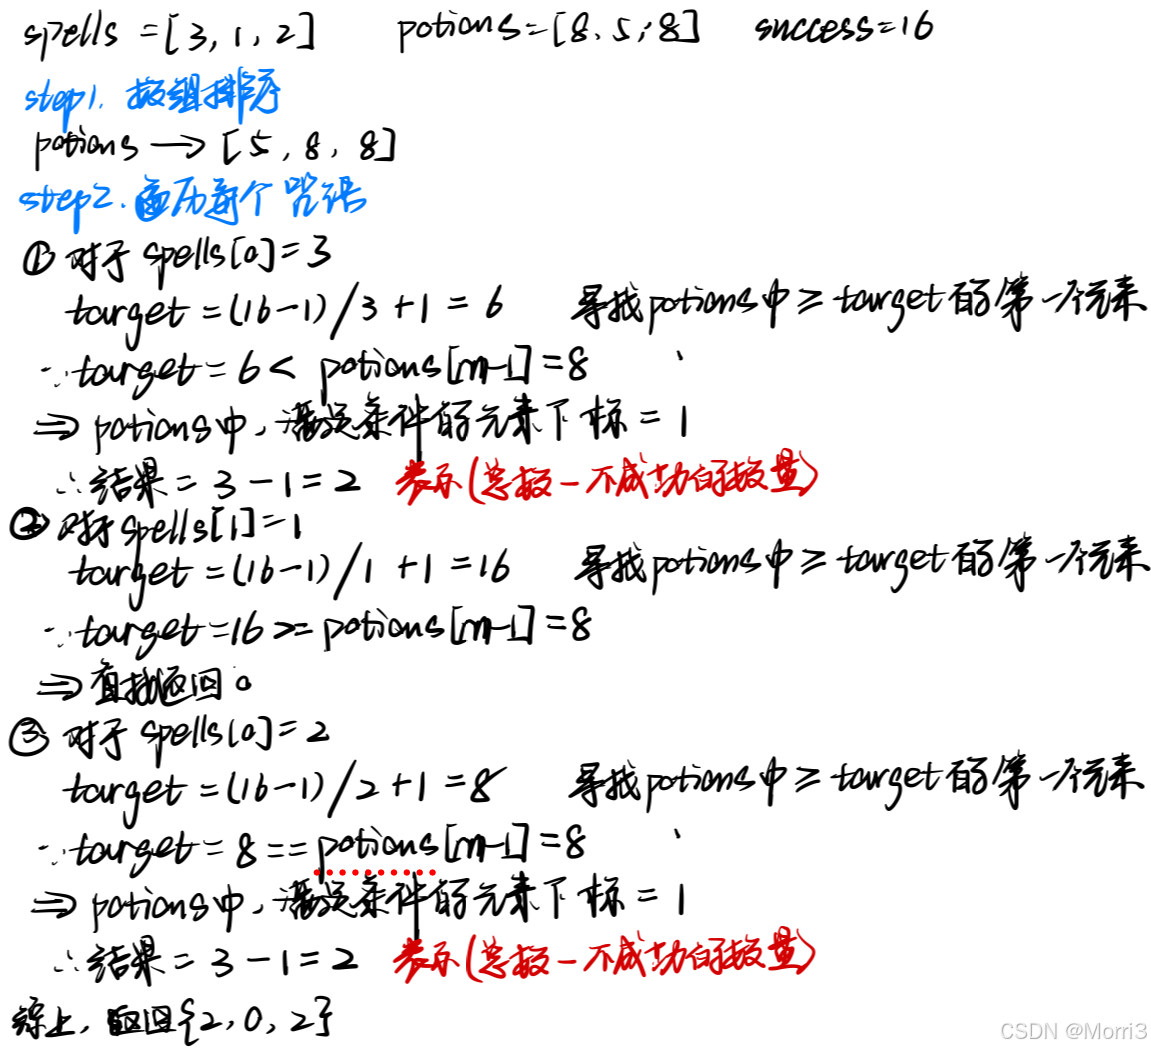 spells = [3, 1, 2] potions = [8, 5, 8] success = 16
step1. 数组排序
potions → [5, 8, 8]
step2. 遍历每个咒语
① 对于 spells[0] = 3
target = (16-1)/3 + 1 = 6 寻找potions中 ≥ target的第一个元素
∵ target = 6 < potions[m-1] = 8
⇒ potions中, 满足条件的元素下标 = 1
∴ 结果 = 3 - 1 = 2 表示(总数-不成功的数量)
② 对于 spells[1] = 1
target = (16-1)/1 + 1 = 16 寻找potions中 ≥ target的第一个元素
∵ target = 16 >= potions[m-1] = 8
⇒ 直接返回0
③ 对于 spells[0] = 2
target = (16-1)/2 + 1 = 8 寻找potions中 ≥ target的第一个元素
∵ target = 8 == potions[m-1] = 8
⇒ potions中, 满足条件的元素下标 = 1
∴ 结果 = 3 - 1 = 2 表示(总数-不成功的数量)
综上, 返回{2, 0, 2}
CSDN @Morri3